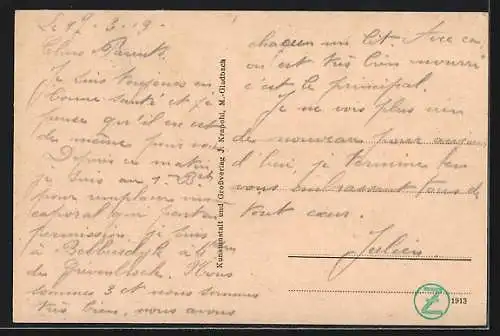 Le 9-3-19.
Chers Parents.
Je suis toujours en
bonne santé et je
pense qu'il en est
de même pour vous
Depuis ce matin
je suis au 1. Bon
pour remplacer un
caporal qui part en
permission. je suis
à à 6 km
de Grevenbroich. Nous
sommes 3 et nous sommes
très bien, nous avons
chacun un lit. Avec ça
on est très bien nourri
c'est le principal.
Je ne vois plus rien
de nouveau pour aujour
d'hui, je termine en
vous embrassant tous de
tout cœur.
Julien.
Kunstanstalt und Großverlag J. Krapohl, M.-Gladbach
1913